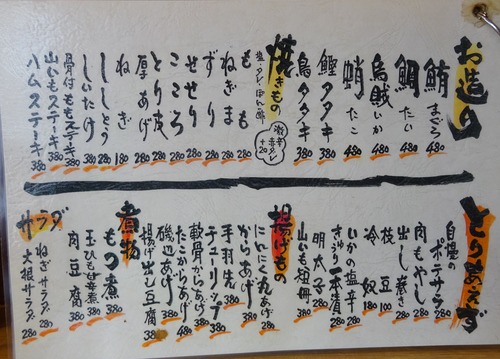 お造り
鮪 まぐろ 480
鯛 たい 480
烏賊 いか 480
蛸 たこ 480
鰹タタキ 380
鳥タタキ 380
焼きもの
塩・タレ・ぽん酢
激辛タレ +20
もも 280
ねぎま 280
ずり 280
せせり 280
こころ 280
とり皮 280
厚あげ 280
ねぎ 180
ししとう 280
しいたけ 280
骨付ももステーキ 380
山いもステーキ 380
ハムステーキ 380
とりあえず
自慢のポテサラダ 280
肉もやし 380
出し巻き 280
枝豆 100
冷奴 180
いかの塩辛 280
きゅうり一本漬 280
明太子 280
山いも短冊 380
揚げもの
にんにく丸あげ 280
からあげ 380
手羽先 380
チューリップ 380
軟骨からあげ 380
たこからあげ 480
磯辺あげ 380
揚げ出し豆腐 380
煮物
もつ煮 380
玉ひも辛煮 380
肉豆腐 380
サラダ
ねぎサラダ 280
大根サラダ 280